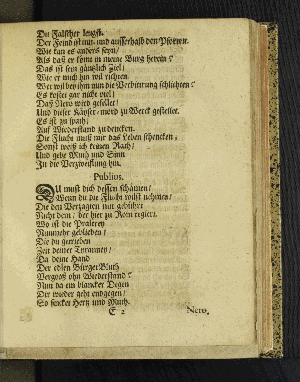 Du Falscher leugst.
Der Feind ist inn- und ausserhalb den Pforten.
Wie kan es anders seyn/
Als daß er kome in meine Burg herein?
Das ist sein gäntzlich Ziel/
Wie er mich hin wil richten.
Wer wil bey ihm nun die Verbitterung schlichten?
Es kostet gar nicht viel/
Daß Nero wird gefellet/
Und dieser Käyser-mord zu Werck gestellet.
Es ist zu spath/
Auf Wiederstand zu dencken.
Die Flucht muß mir das Leben schencken/
Sonst weiß ich keinen Rath/
Und gebe Muth und Sinn
In die Verzweiflung hin.
Publius.
Du must dich dessen schämen/
Wenn du die Flucht wilst nehmen/
Die den Verzagten nur gebührt
Nicht dem/ der hier zu Rom regiert.
Wo ist die
Nunmehr geblieben/
Die du getrieben
Zeit deiner Tyranney/
Da deine Hand
Der edlen Bürger Bluth
Vergoß ohn Wiederstand?
Nun da ein blancker Degen
Dir wieder geht entgegen/
So sincket Hertz und Muth.
E 2 Nero.